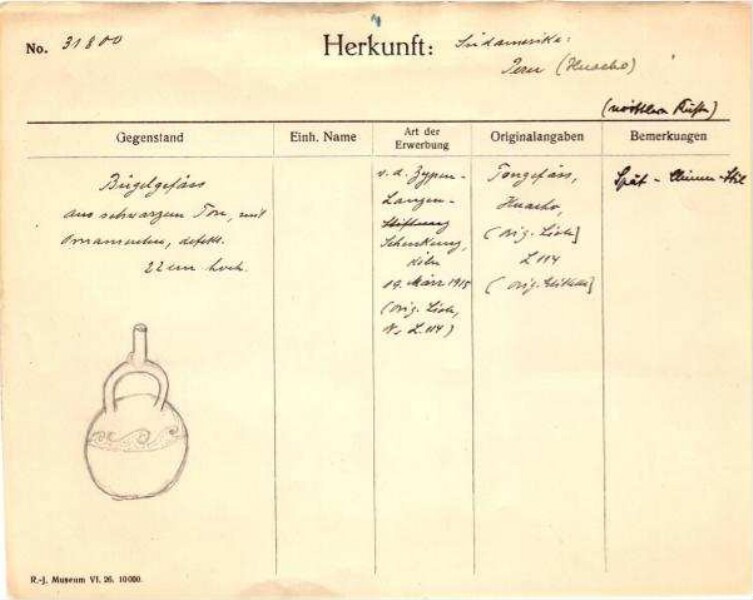 No. 31800
Herkunft: Südamerika:
Peru (Huacho)
(nördliche Küste)
Gegenstand
Einh. Name
Art der Erwerbung
Originalangaben
Bemerkungen
Bügelgefäss
aus schwarzem Ton, mit
Ornamenten, defekt.
22 cm hoch.
v. d. Zypen-
Langen-
Stiftung
Schenkung,
Köln
19. März 1915
(Orig. Liste,
No L.114)
Tongefäss,
Huacho,
(Orig. Liste]
L 114
(Orig. Etikette]
Spät-Chimu-Stil
R.-J. Museum VI. 26. 10000.